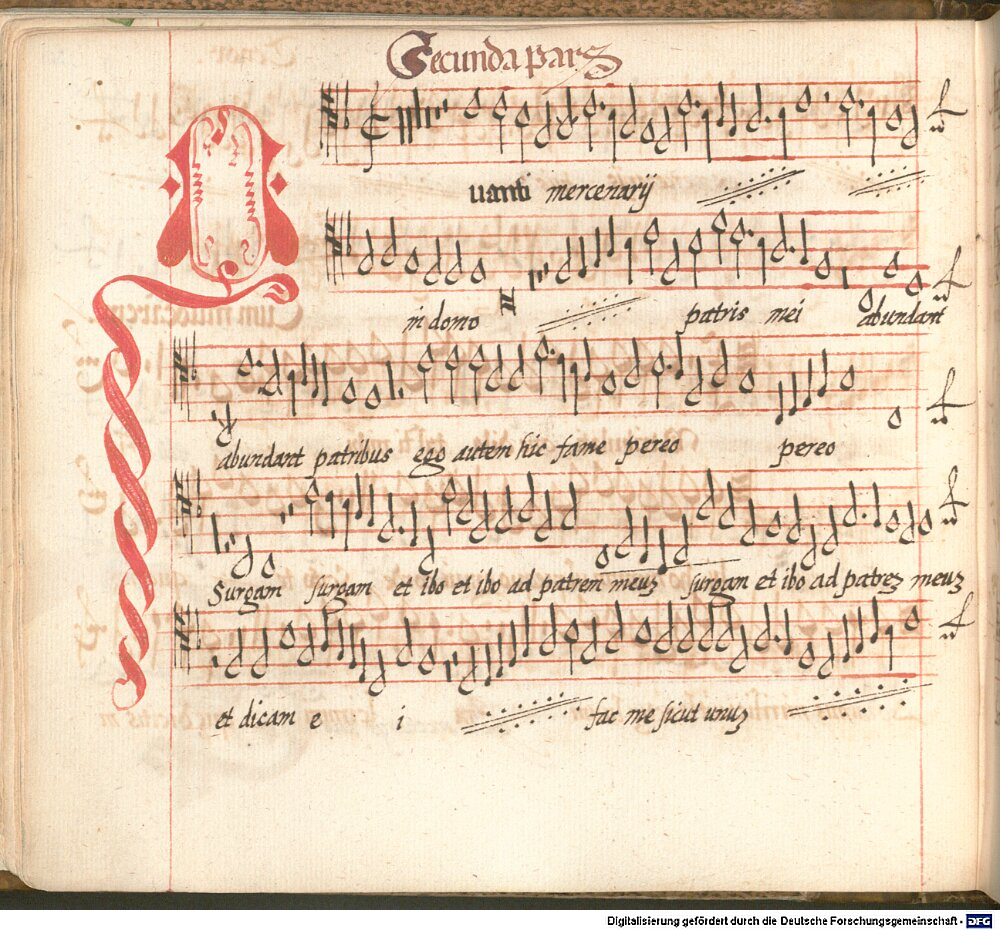 Secunda pars
Quanti mercenarij
in domo patris mei abundant
abundant patribus ego autem hic fame pereo pereo
Surgam surgam et ibo et ibo ad patrem meuz surgam et ibo ad patrez meuz
et dicam e i fac me sicut unuz
Digitalisierung gefördert durch die Deutsche Forschungsgemeinschaft - DFG